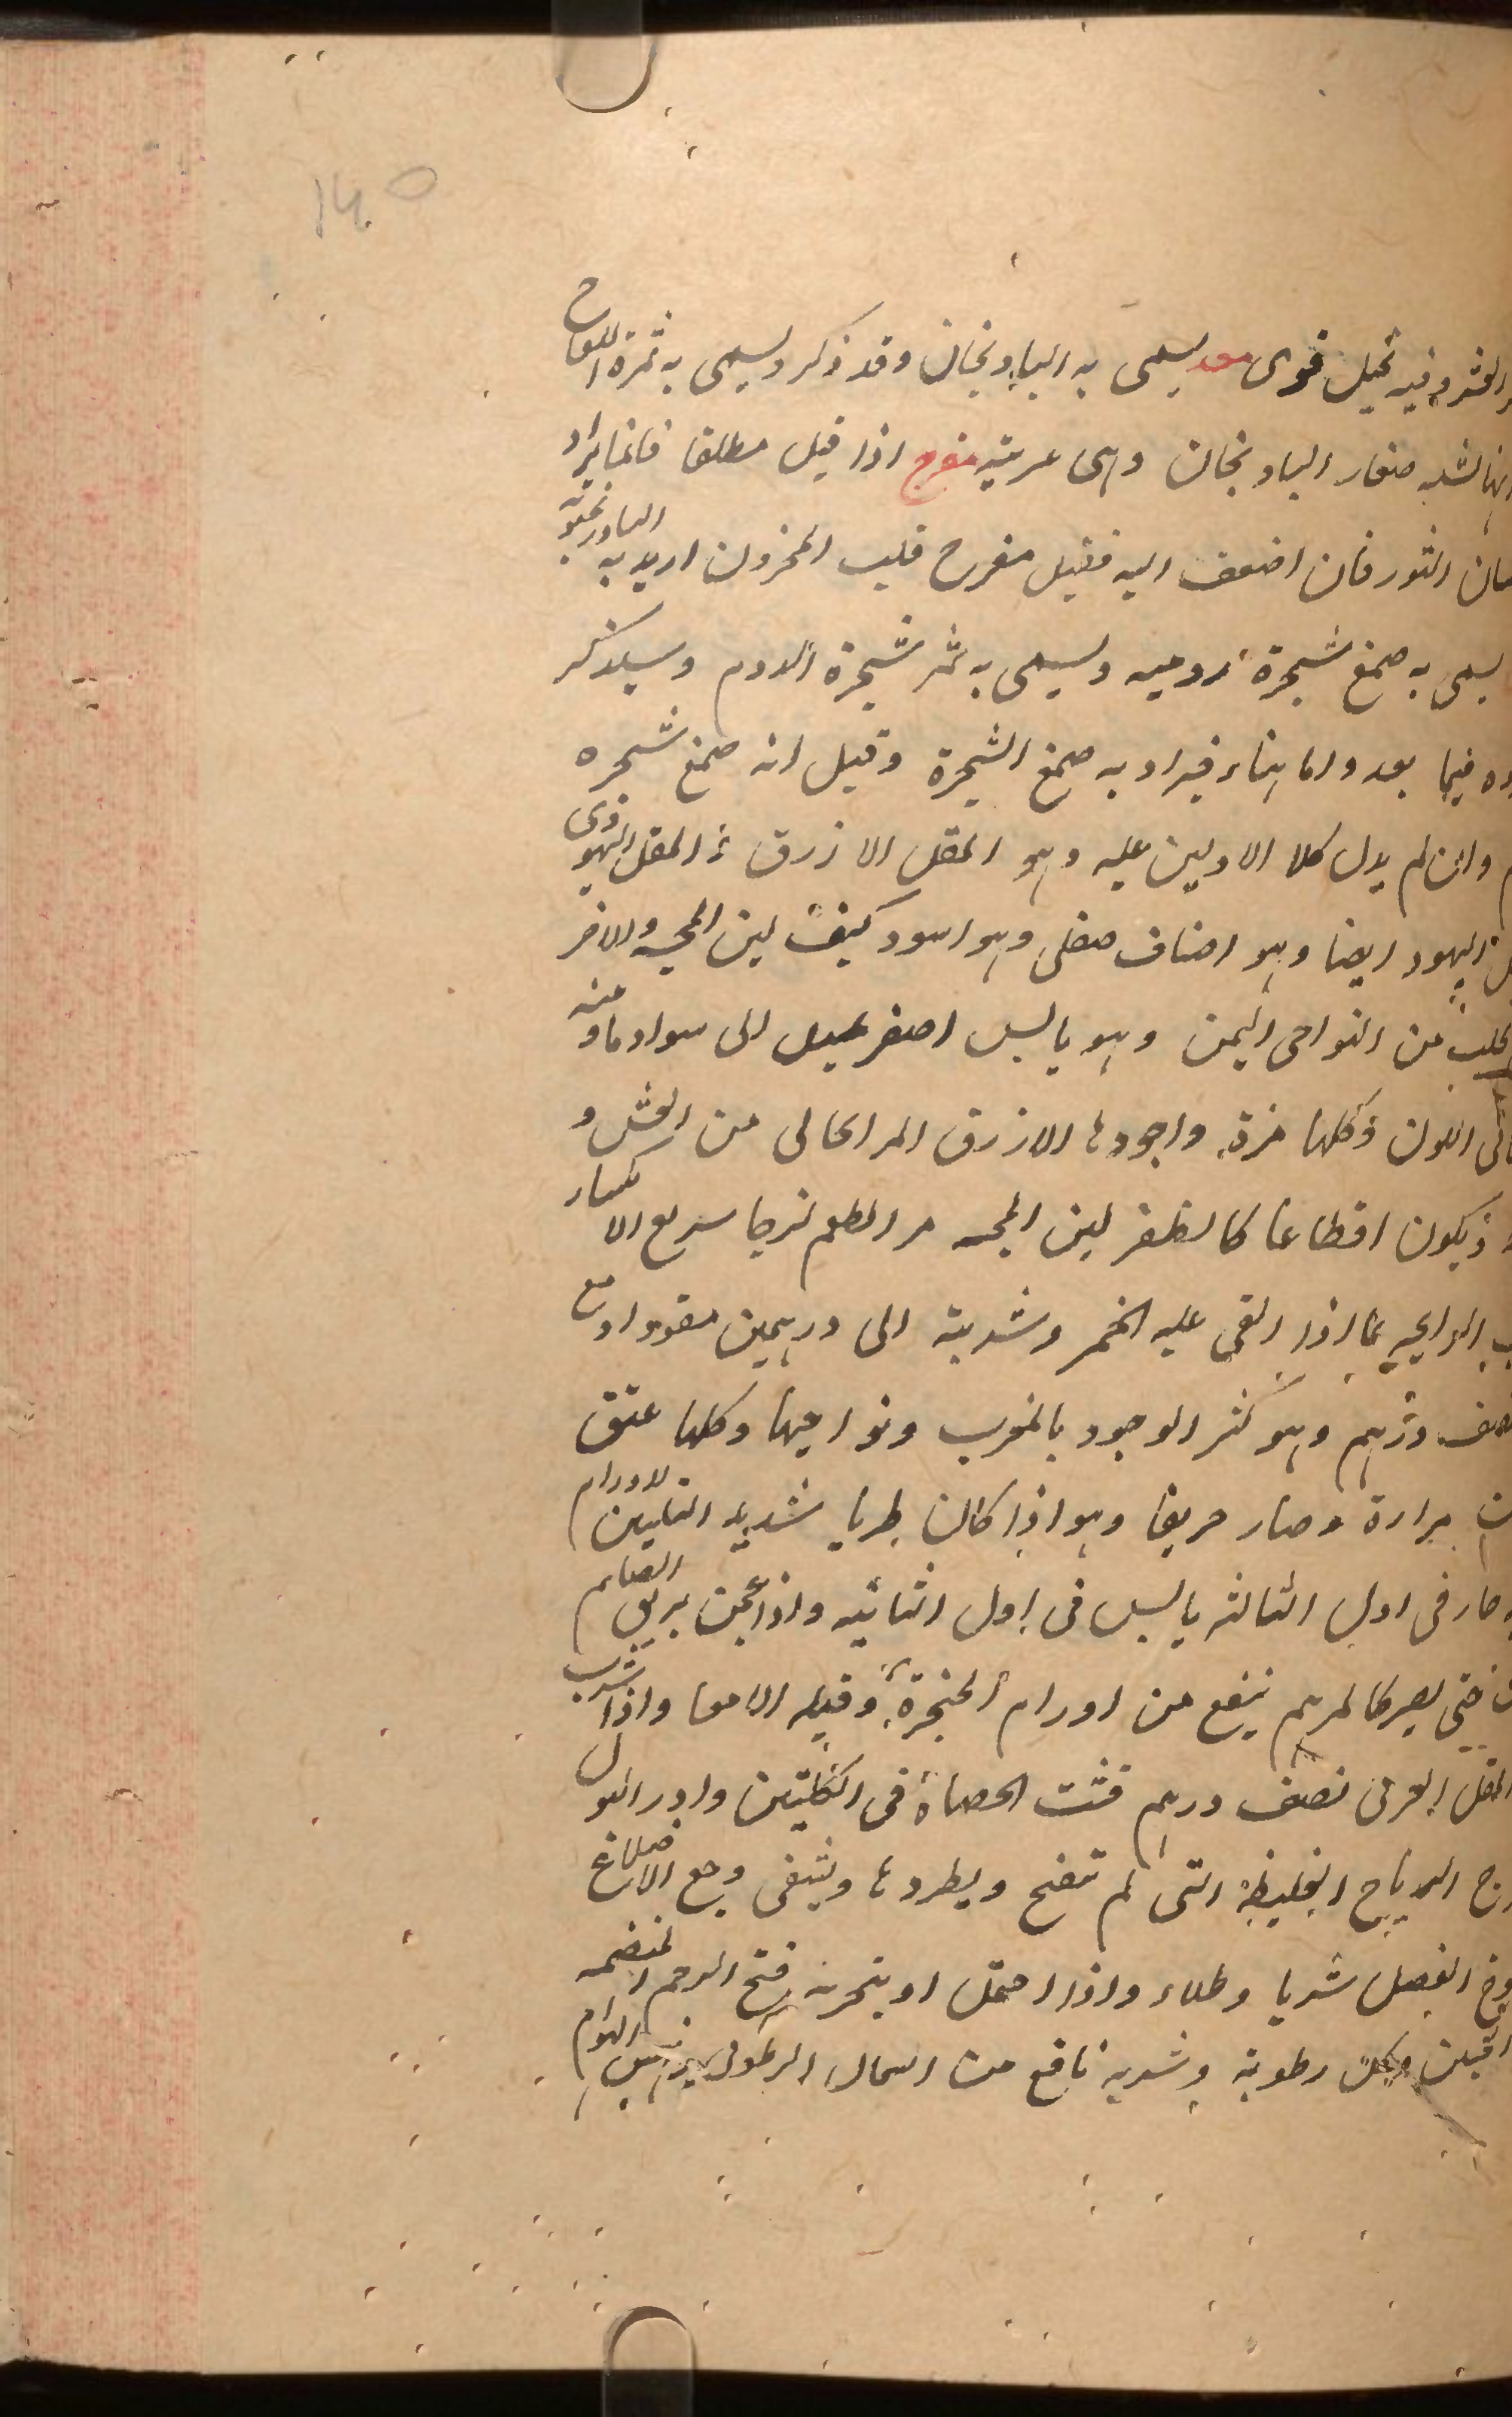 140
وفيه تحليل قوى معد يسمى به الباذنجان وقد ذكر ويسمى به ثمرة اللفاح
صغار الباذنجان وهى عربية مفرح اذا قيل مطلقا فانما يراد
الثور فان اضعف اليه فقيل مفرح قلب المحزون اريد به البادرنجبويه
يسمى به صمغ شجرة رومية ويسمى به ثمر شجرة الدوم وسيذكر
فيما بعد واما هنا فيراد به صمغ الشجرة وقيل انه صمغ شجره
وان لم يدل كلا الاولين عليه وهو المقل الازرق المقل اليهودى
اليهود ايضا وهو اصناف صقلى وهو اسود كثيف لين المجسه والاخر
من النواحى اليمن وهو يابس اصفر يميل الى سواد ما ومنه
اللون وكلها مرة واجودها الازرق المر الخالى من الغش و
ويكون اقطاعا كالظفر لين المجسه مر الطعم لزجا سريع الانكسار
الرايحه اذا القى عليه الخمر وشربته الى درهمين مفردا ومع
درهم وهو كثر الوجود بالمغرب ونواحيها وكلها عتق
مرارة وصار حريفا وهو اذا كان طريا شديد التليين للاورام
حار فى اول الثالثه يابس فى اول الثانيه واذا عجن بريق الصايم
حتى يصير كالمرهم ينفع من اورام الحنجرة وقيله الامعا واذا شرب
المقل العربى نصف درهم فتت الحصاة فى الكليتين وادر البول
الرياح الغليظة التى لم تنضج ويطردها ويشفى وجع الاضلاع
العضل شربا وطلاء واذا احتمل او بتخربه فتح الرحم المنضمه
رطوبة وشربه نافع من السعال الهوام